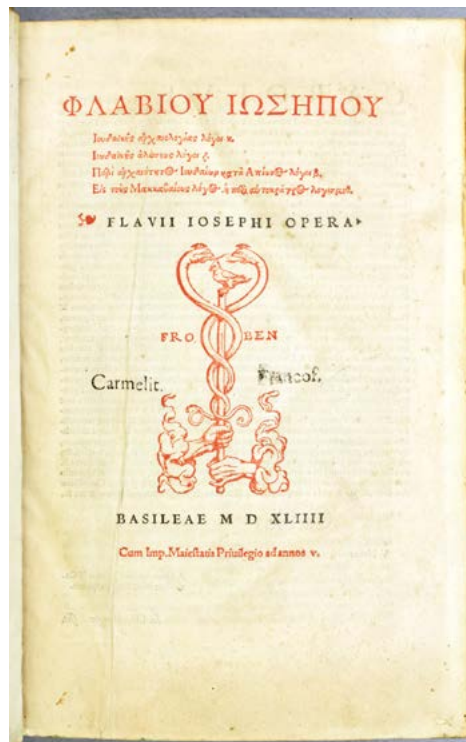 ΦΛΑΒΙΟΥ ΙΩΣΗΠΟΥ
Ιουδαϊκῆς ἀρχαιολογίας λόγοι κ.
Ιουδαϊκῆς ἁλώσεως λόγοι ζ.
Περὶ ἀρχαιότητος Ιουδαίων κατὰ Απίωνος λόγοι β.
Εἰς τοὺς Μακκαβαίους λόγος ἢ περὶ αὐτοκράτορος λογισμοῦ.
FLAVII IOSEPHI OPERA
FRO BEN
Carmelit. Francof.
BASILEAE M D XLIIII
Cum Imp. Maiestatis Priuilegio ad annos v.